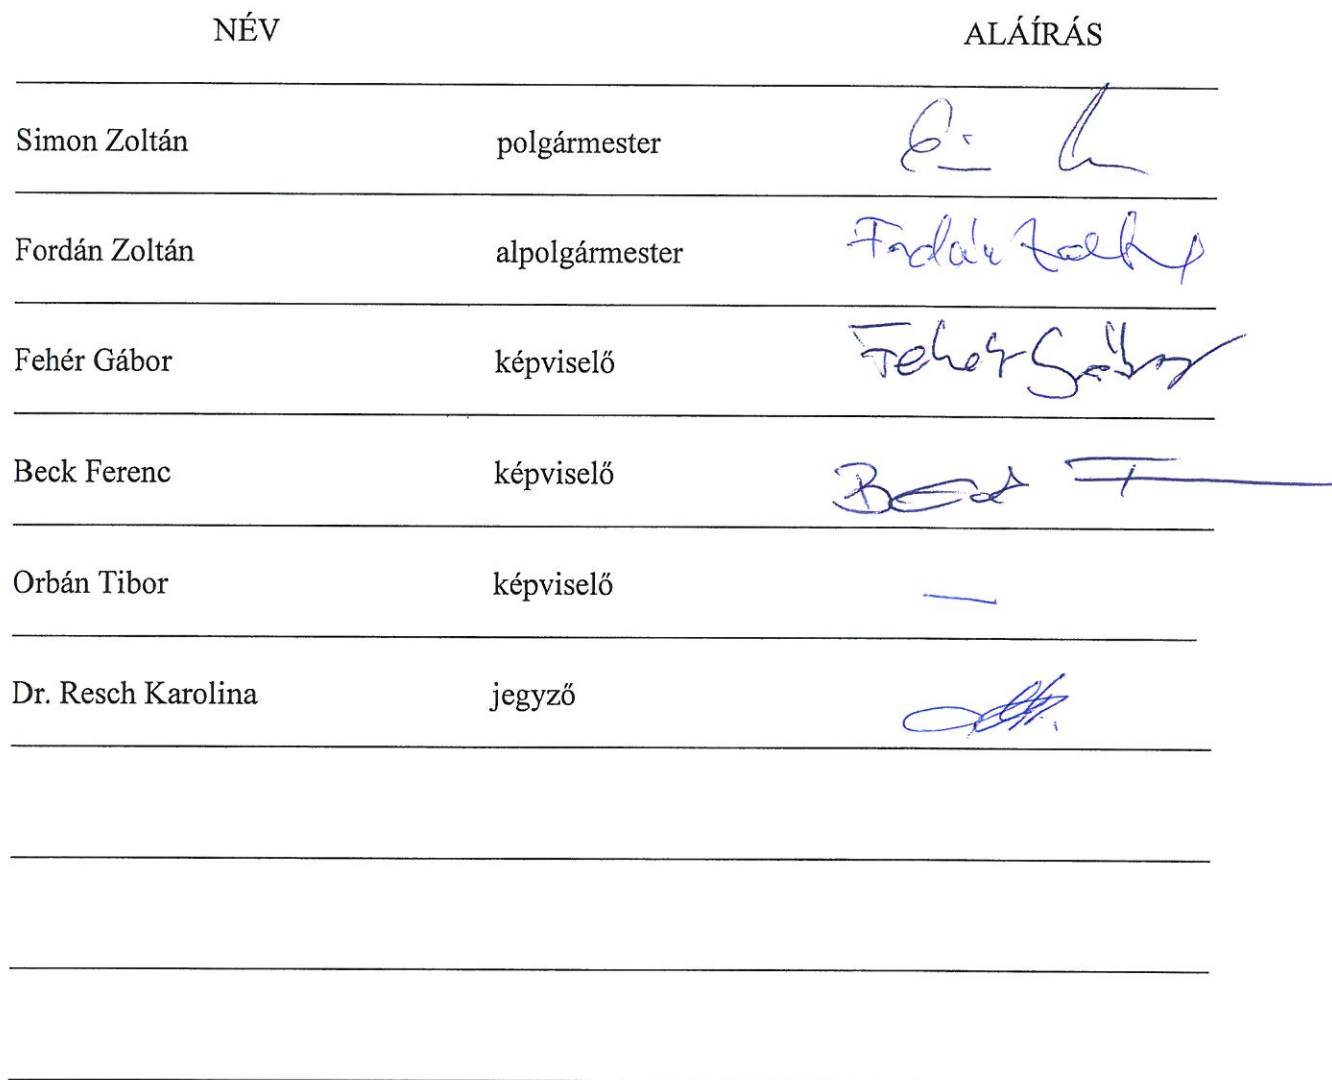 NÉV ALÁÍRÁS
Simon Zoltán polgármester
Fordán Zoltán alpolgármester Fordán Zoltán
Fehér Gábor képviselő Fehér Gábor
Beck Ferenc képviselő Beck F
Orbán Tibor képviselő —
Dr. Resch Karolina jegyző